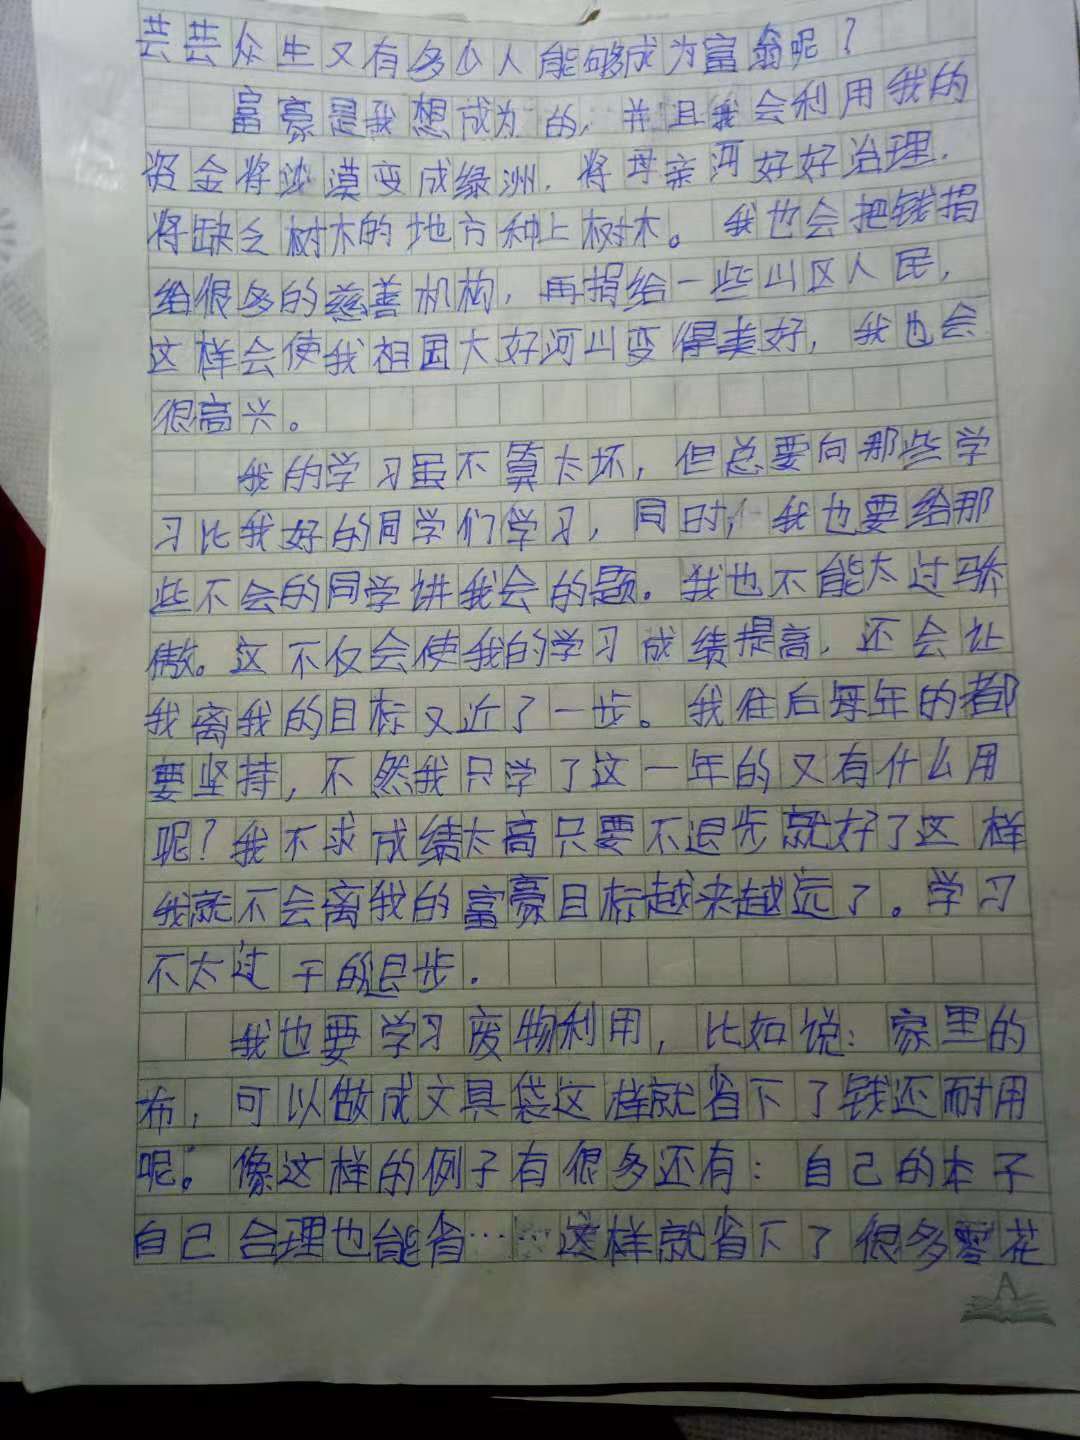 芸芸众生又有多少人能够成为富翁呢？
富豪是我想成为的，并且我会利用我的
资金将沙漠变成绿洲，将母亲河好好治理，
将缺乏树木的地方种上树木。我也会把钱捐
给很多的慈善机构，再捐给一些山区人民，
这样会使我祖国大好河山变得美好，我也会
很高兴。
我的学习虽不算太坏，但总要向那些学
习比我好的同学们学习，同时，我也要给那
些不会的同学讲我会的题。我也不能太过骄
傲。这不仅会使我的学习成绩提高，还会让
我离我的目标又近了一步。我往后每年的都
要坚持，不然我只学了这一年的又有什么用
呢？我不求成绩太高只要不退步就好了这样
我就不会离我的富豪目标越来越远了。学习
不太过于的退步.
我也要学习废物利用，比如说：家里的
布，可以做成文具袋这样就省下了钱还耐用
呢。像这样的例子有很多还有：自己的本子
自己合理也能省……这样就省下了很多零花
A